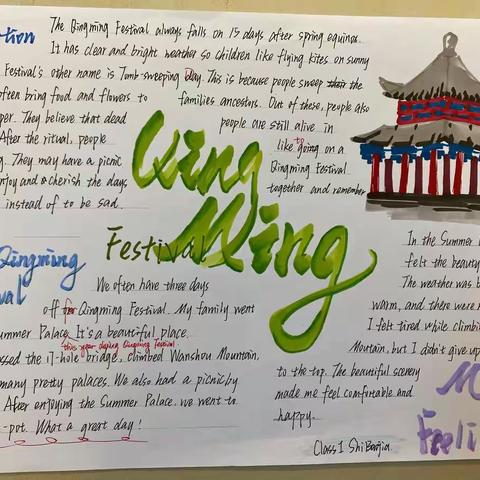 The Qingming Festival always falls on 15 days after spring equinox.
It has clear and bright weather so children like flying kites on sunny
Festival's other name is Tomb-sweeping Day. This is because people sweep their
often bring food and flowers to families ancestors. Out of these, people also
They believe that dead people are still alive in
After the ritual, people like to going on a
They may have a picnic Qingming Festival
enjoy and cherish the days together and remember
instead of to be sad.
Qing
Ming
Festival
Qingming
We often have three days
off for Qingming Festival. My family went
Summer Palace. It's a beautiful place.
this year during Qingming Festival
the 17-hole bridge, climbed Wanshou Mountain,
many pretty palaces. We also had a picnic by
After enjoying the Summer Palace. we went to
-pot. What a great day!
In the Summer
felt the beauty
The weather was
warm, and there were
I felt tired while
Moutain, but I didn't give up
to the top. The beautiful scenery
made me feel comfortable and
happy.
Class 1 Shi Baojia